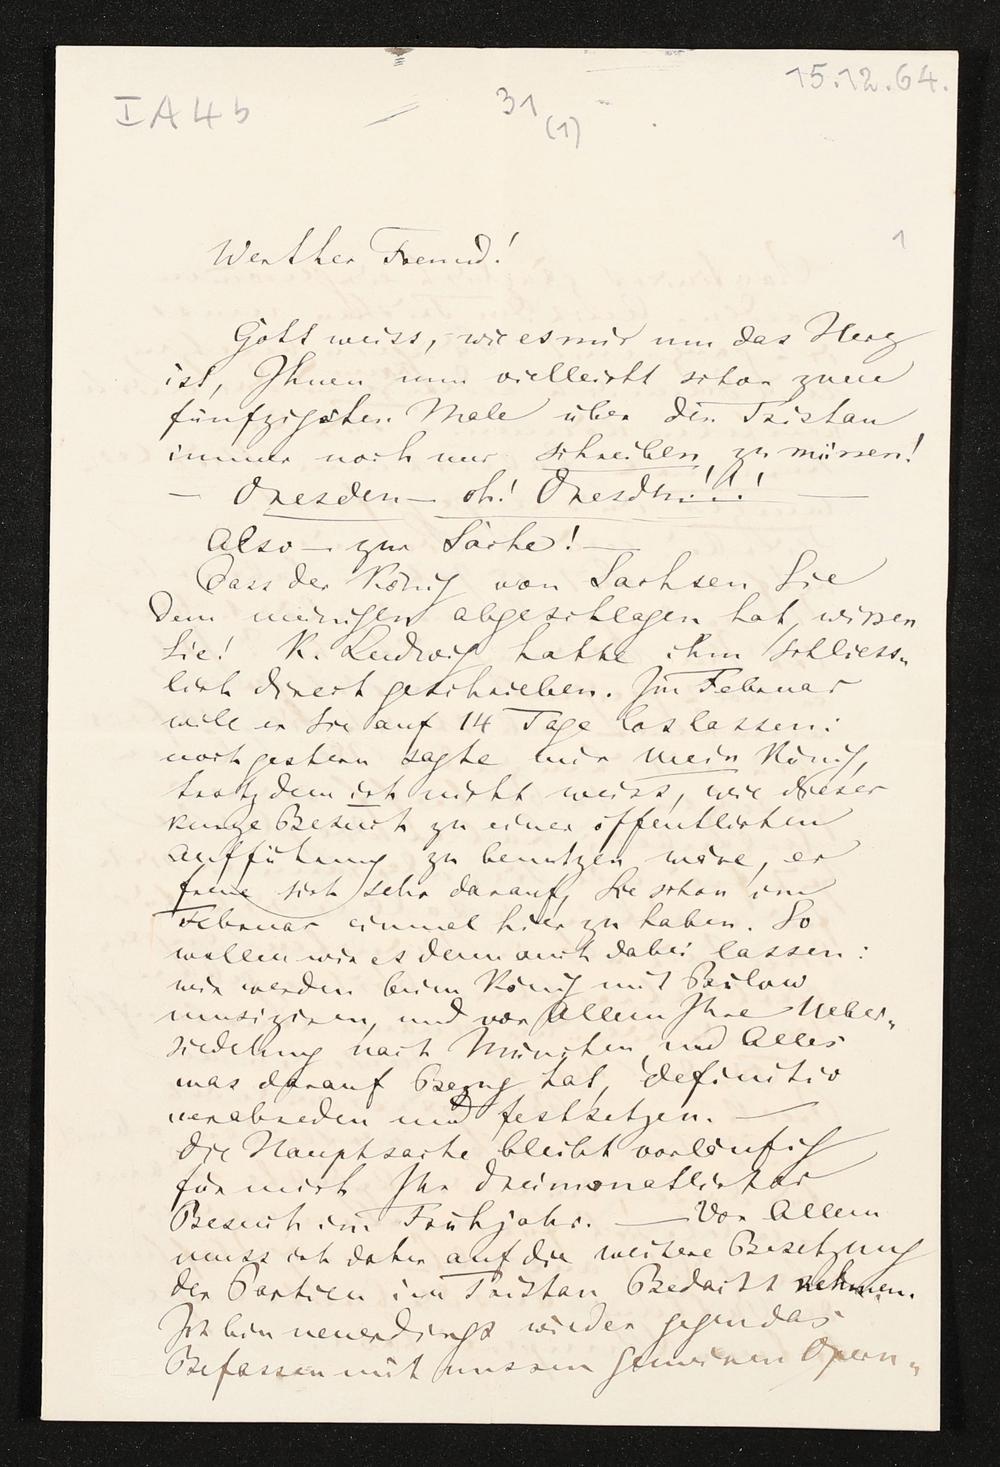 15.12.64.
I A 4 b
31
(1)
1
Werther Freund!
Gott weiss, wie es mir um das Herz
ist, Ihnen nun vielleicht schon zum
fünfzigsten Male über den Tristan
immer noch nur schreiben zu müssen!
— Dresden — oh! Dresden!!! —
Also — zur Sache! —
Dass der König von Sachsen Sie
dem meinigen abgeschlagen hat, wissen
Sie! K. Ludwig hatte ihm schliess-
lich direct geschrieben. Im Februar
will er Sie auf 14 Tage loslassen:
noch gestern sagte mir mein König,
trotzdem ich nicht weiss, wie dieser
kurze Besuch zu einer öffentlichen
Aufführung zu benutzen wäre, er
freue sich sehr darauf, Sie schon im
Februar einmal hier zu haben. So
wollen wir es denn auch dabei lassen:
wir werden beim König mit Bülow
musiziren, und vor Allem Ihre Ueber-
siedelung nach München, und Alles
was darauf Bezug hat, definitiv
verabreden und festsetzen. —
Die Hauptsache bleibt vorläufig
für mich Ihr dreimonatlicher
Besuch im Frühjahr. — Vor Allem
muss ich daher auf die weitere Besetzung
der Partien im Tristan Bedacht nehmen.
Ich bin neuerdings wieder gegen das
Befassen mit unsren gemeinen Opern-